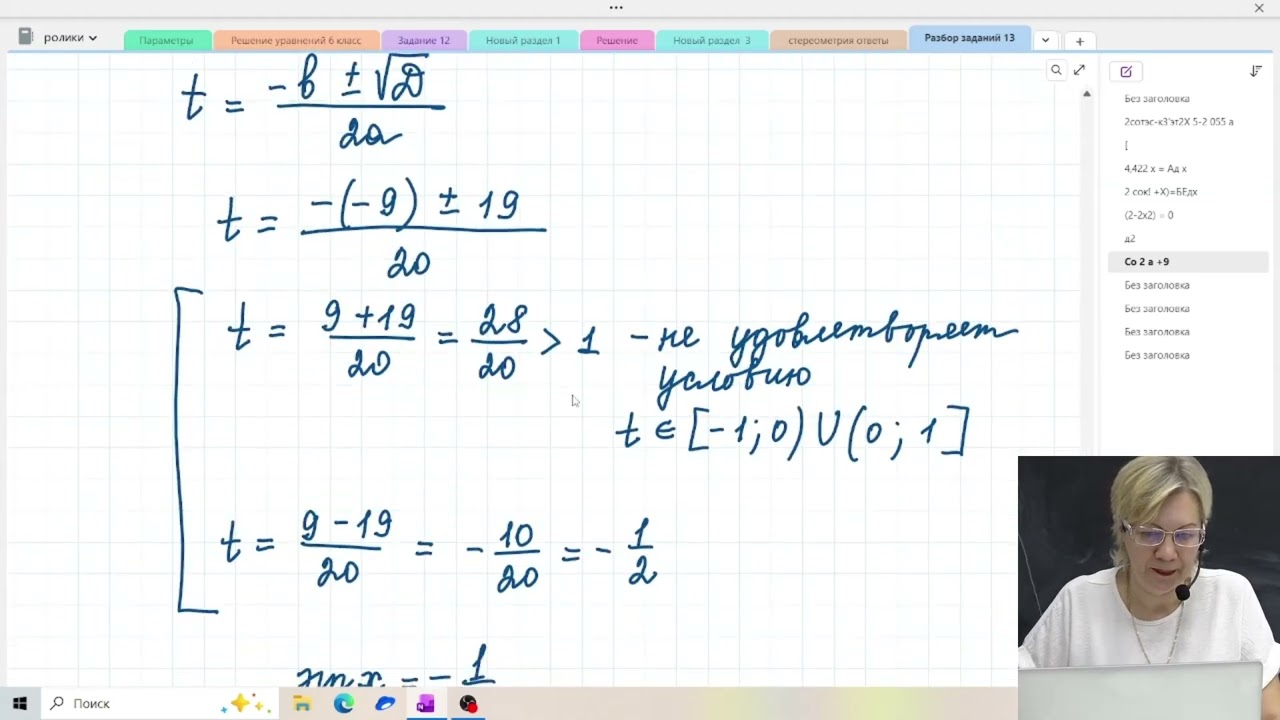 ролики
Параметры
Решение уравнений 6 класс
Задание 12
Новый раздел 1
Решение
Новый раздел 3
стереометрия ответы
Разбор заданий 13
t = -b ± √D / 2a
t = -(-9) ± 19 / 20
t = 9 + 19 / 20 = 28 / 20 > 1 - не удовлетворяет
условию
t ∈ [-1; 0) U (0; 1]
t = 9 - 19 / 20 = - 10 / 20 = - 1 / 2
sin x = - 1
Без заголовка
2сотэс-к3'эт2Х 5-2 055 а
[
4,422 х = Ад х
2 сок! +Х)=БЕдх
(2-2х2) = 0
д2
Со 2 а +9
Без заголовка
Без заголовка
Без заголовка
Без заголовка
Поиск